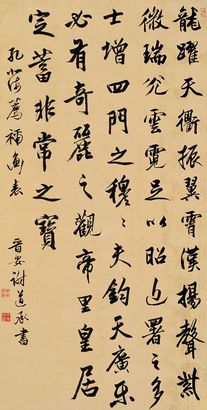 龍躍天衢振翼霄漢揚聲紫
微瑞光雲霓足以昭近署之多
士增四門之穆々夫鈞天廣樂
必有奇麗之觀帝里皇居
定蓄非常之寶
孔北海薦禰衡表
晉安謝道承書